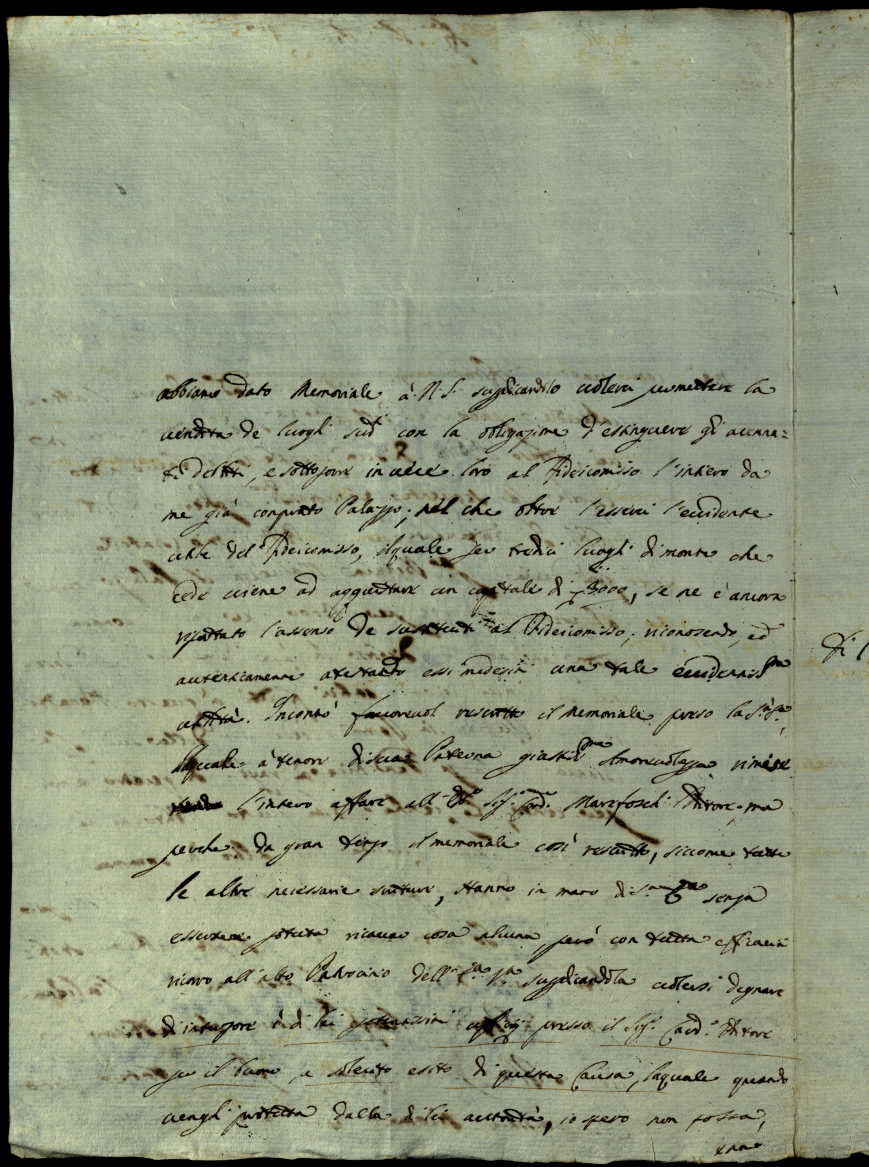 abbiamo dato Memoriale à N. S. supplicandolo volerci permettere la
vendita de luogli sud.i con la obligazione d'estinguere gl'accenna=
ti debiti, e sottoporre in vece loro al Fideicomisso l'intero da
me già comprato Palazzo; nel che oltre l'esserci l'evidente
utile del Fideicomisso, il quale per tredici luogli di monte che
cede viene ad acquistare un capitale di 3000, se ne è ancora
riportato l'assenso de sustituti al Fideicomisso, riconoscendo, ed
autenticamente attestando essi medesimi una tale evidentiss.ma
utilità. Incontrò favorevol rescritto il Memoriale preso la S.tà S.a
la quale à tenore di sua Paterna giustiss.ma Amorevolezza rimise
l'intero affare all' Sig.r Card. Marefoschi Uditore, ma
perche da gran tempo il memoriale così rescritto, siccome tutte
le altre necessarie scritture, stanno in mano di S.a Em.a senza
essersene potuta ricavar cosa alcuna, però con tutta efficacia
ricorro all'alto Patrocinio dell' supplicandola volersi degnare
d'interporre i di lei potentissimi uffizj presso il Sig.r Card.e Uditore
per il buono, e sollecito esito di questa Causa, la quale quando
vengli protetta dalla di lei autorità, io spero non possa,